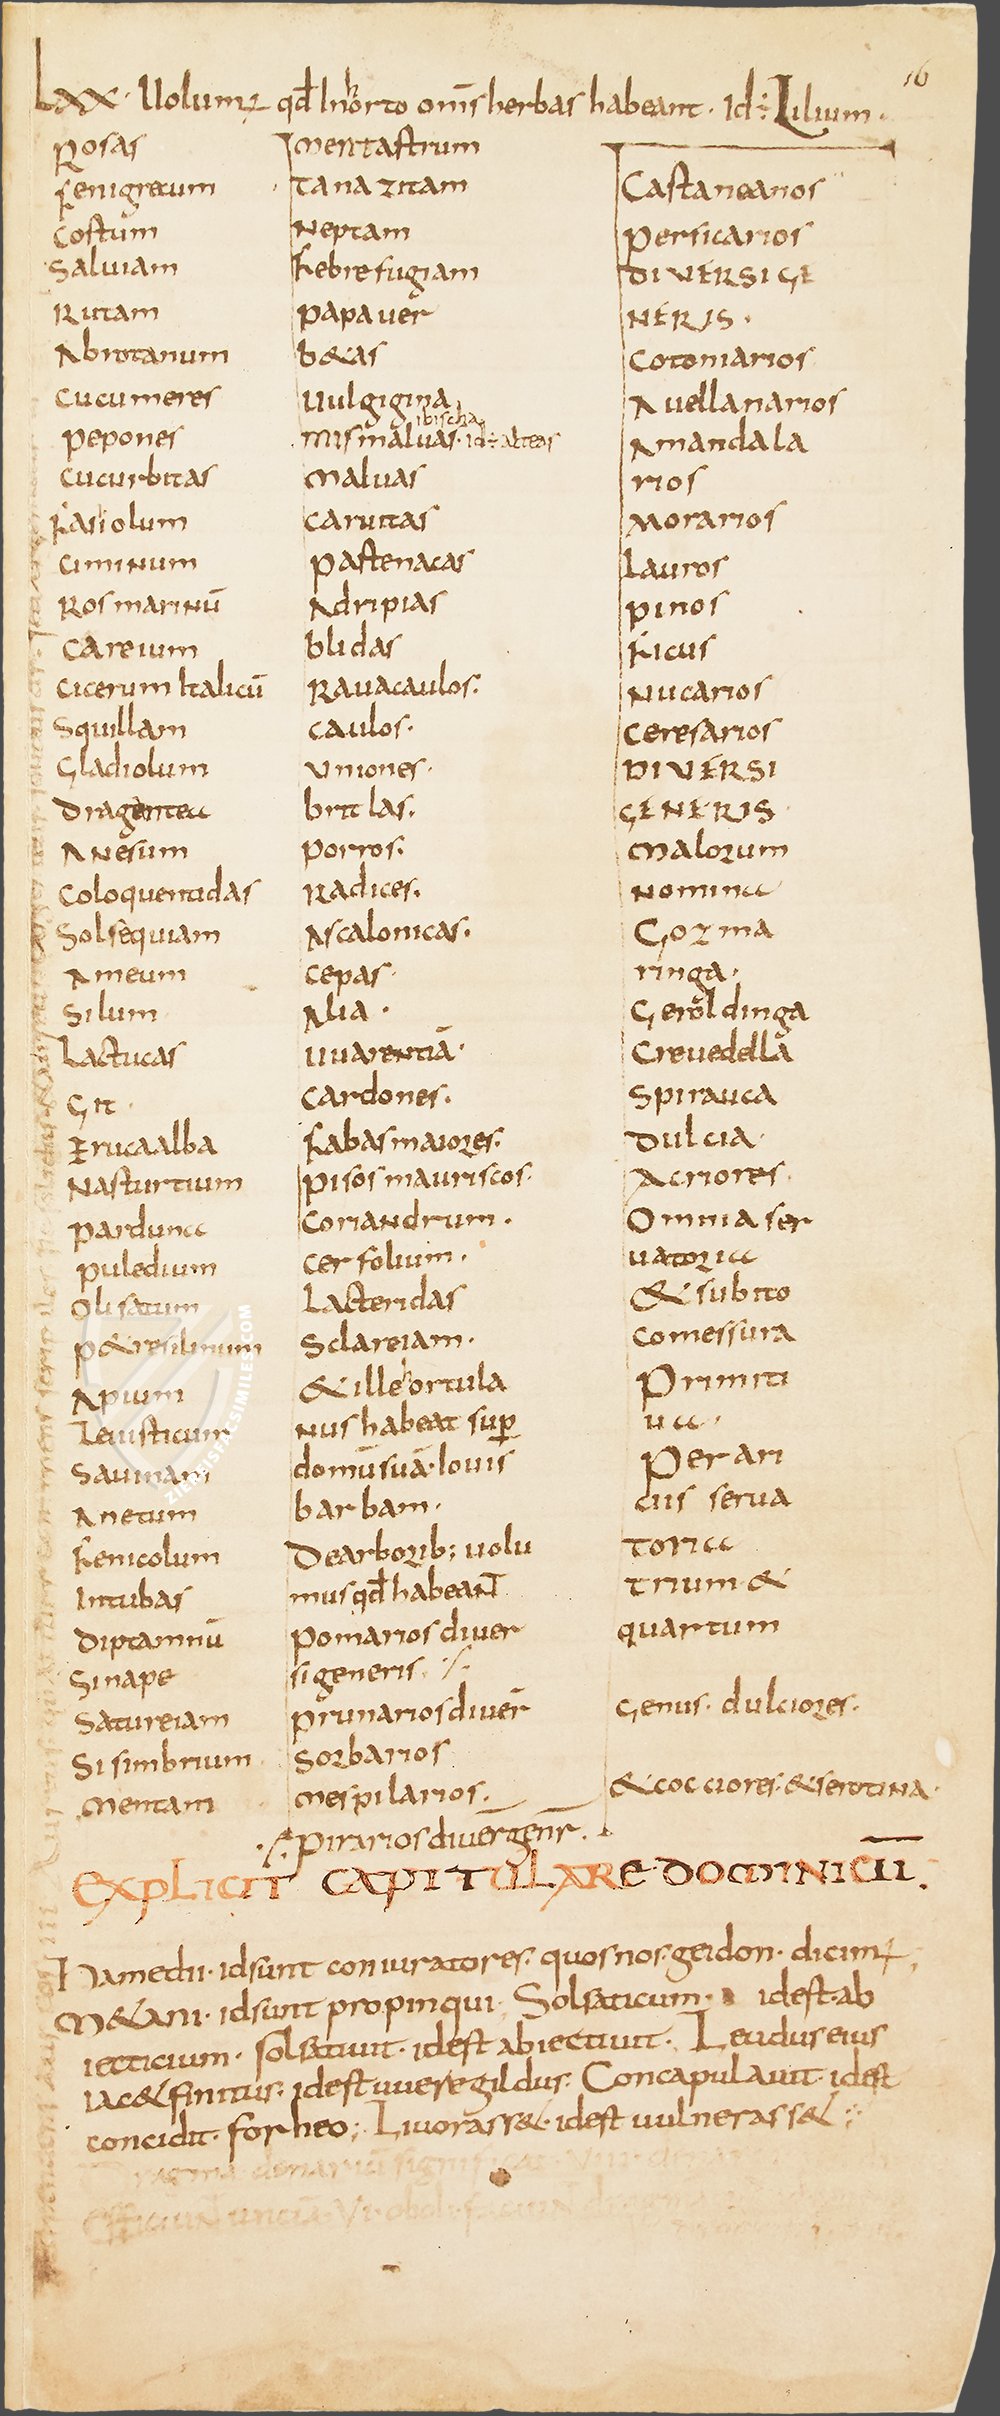 16
Lxx. Uolum; qđ In horto om̄s herbas habeant. Id÷ Lilium.
Rosas
fenigrecum
Costum
Saluiam
Rutam
Abrotanum
Cucumeres
pepones
Cucurbitas
fasiolum
Ciminum
Ros marinū
Careium
Cicerum Italicū
Squillam
Gladiolum
Dragantea
Anesum
Coloquentidas
Solsequiam
Ameum
Silum
Lactucas
Git.
Eruca alba
Nasturtium
parduna
puledium
Olisatum
p&resilinum
Apium
Leuisticum
Sauinam
Anetum
fenicolum
Intubas
Diptamnū
Sinape
Satureiam
Sisimbrium
Mentam
Mentastrum
Tanazitam
Neptam
febrefugiam
papauer
b&as
Uulgigina
ibischa
Mismaluas. id÷ alteas
Maluas
Caruitas
pastenacas
Adripias
blidas
Rauacaulos.
Caulos.
Uniones.
britlas.
porros.
Radices.
Ascalonicas.
Cepas.
Alia.
Uuarentiā.
Cardones.
fabas maiores.
pisos mauriscos.
Coriandrum.
Cerfolium.
Lacteridas
Sclareiam.
& ille hortula
nus habeat sup
domū suā. Iouis
barbam.
De arborib; uolu
mus qđ habeant
Pomarios diuer
si generis ./.
prunarios diuer̄
Sorbarios
Mespilarios.
./. Pirarios diuer̄ gener̄.
Castaneanos
Persicarios
DIVERSI GE
NERIS.
Cotoniarios
Auellanarios
Amandala
rios
Morarios
Lauros
pinos
ficus
Nucarios
Ceresarios
DIVERSI
GENERIS
Malorum
nomina
Gozma
ringa.
Geroldinga
Creuedella
Spirauca
Dulcia.
Acriores.
Omnia ser
uatoria
& subito
comessura
Primiti
ua.
Perari
ciis serua
toria
trium &
quartum
Genus. dulciores.
& cocciores. & serotina.
EXPLICIT CAPITULARE DOMINICŪ.
Hamedii. id sunt coniuratores. quos nos. geidon. dicim;
M&ani. id sunt propinqui. Solsaticum. id est. ab
iecticium. solsatiuit. id est abiectiuit. Leudus eius
iac& finitus. id est uueregildus. Concapulauit. id est
concidit. forheo; Liuorass&. id est uulnerass&;
ZIEREISFACSIMILES.COM